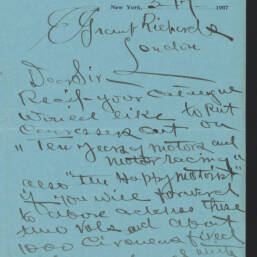 New York, 2/17 1907
E Grant Richards
London
Dear Sir
Rec'd your Catalogue
Would like to put
Canvassers out on
"Ten Years of Motors and
Motor Racing"
also "The Happy Motorist"
if you will forward
to above address these
two vols and about
1000 Circulars fixed